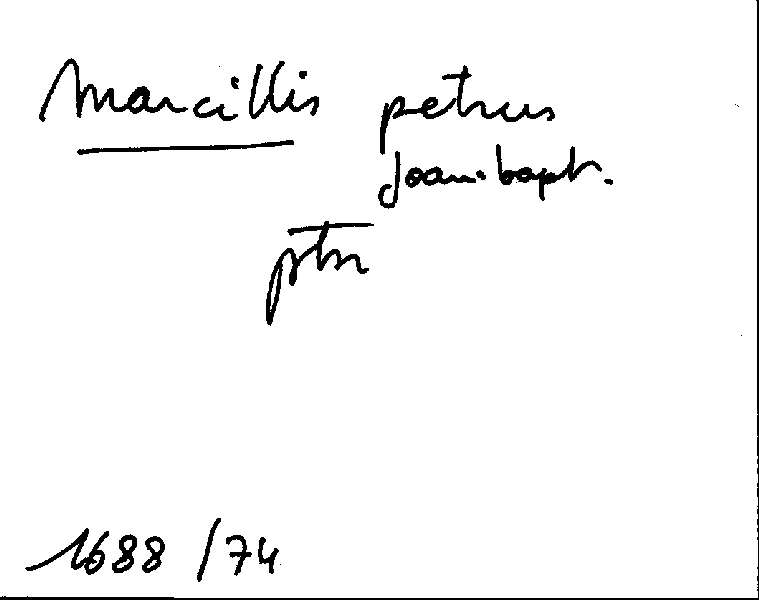 Marcillis petrus
Joan. bapt.
ptr
1688 / 74